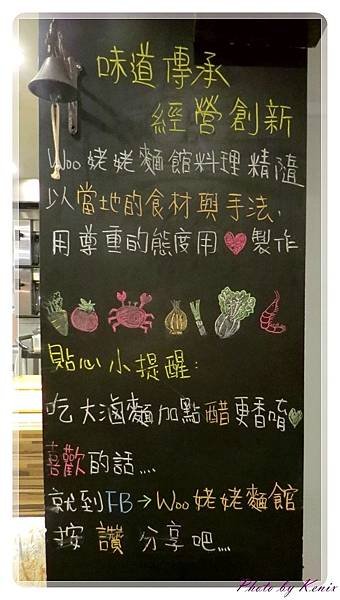 味道傳承
經營創新
Woo 姥姥麵館料理精隨
以當地的食材與手法,
用尊重的態度用♥製作
貼心小提醒:
吃大滷麵加點醋更香唷♥
喜歡的話....
就到FB→Woo姥姥麵館
按讚分享吧...
Photo by Kenix